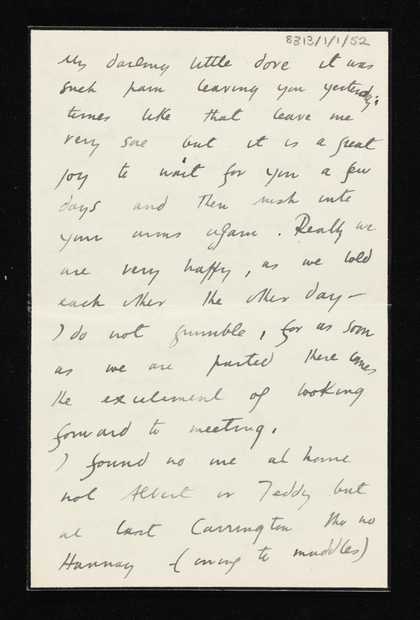 8313/1/1/52
My darling little dove it was
such pain leaving you yesterday;
times like that leave me
very sae but it is a great
joy to wait for you a few
days and then rush into
your arms again. Really we
are very happy, as we told
each other the other day –
I do not grumble, for as soon
as we are parted there comes
the excitement of looking
forward to meeting.
I found no one at home
not Albert or Teddy but
at last Carrington tho no
Hannay (owing to muddles)